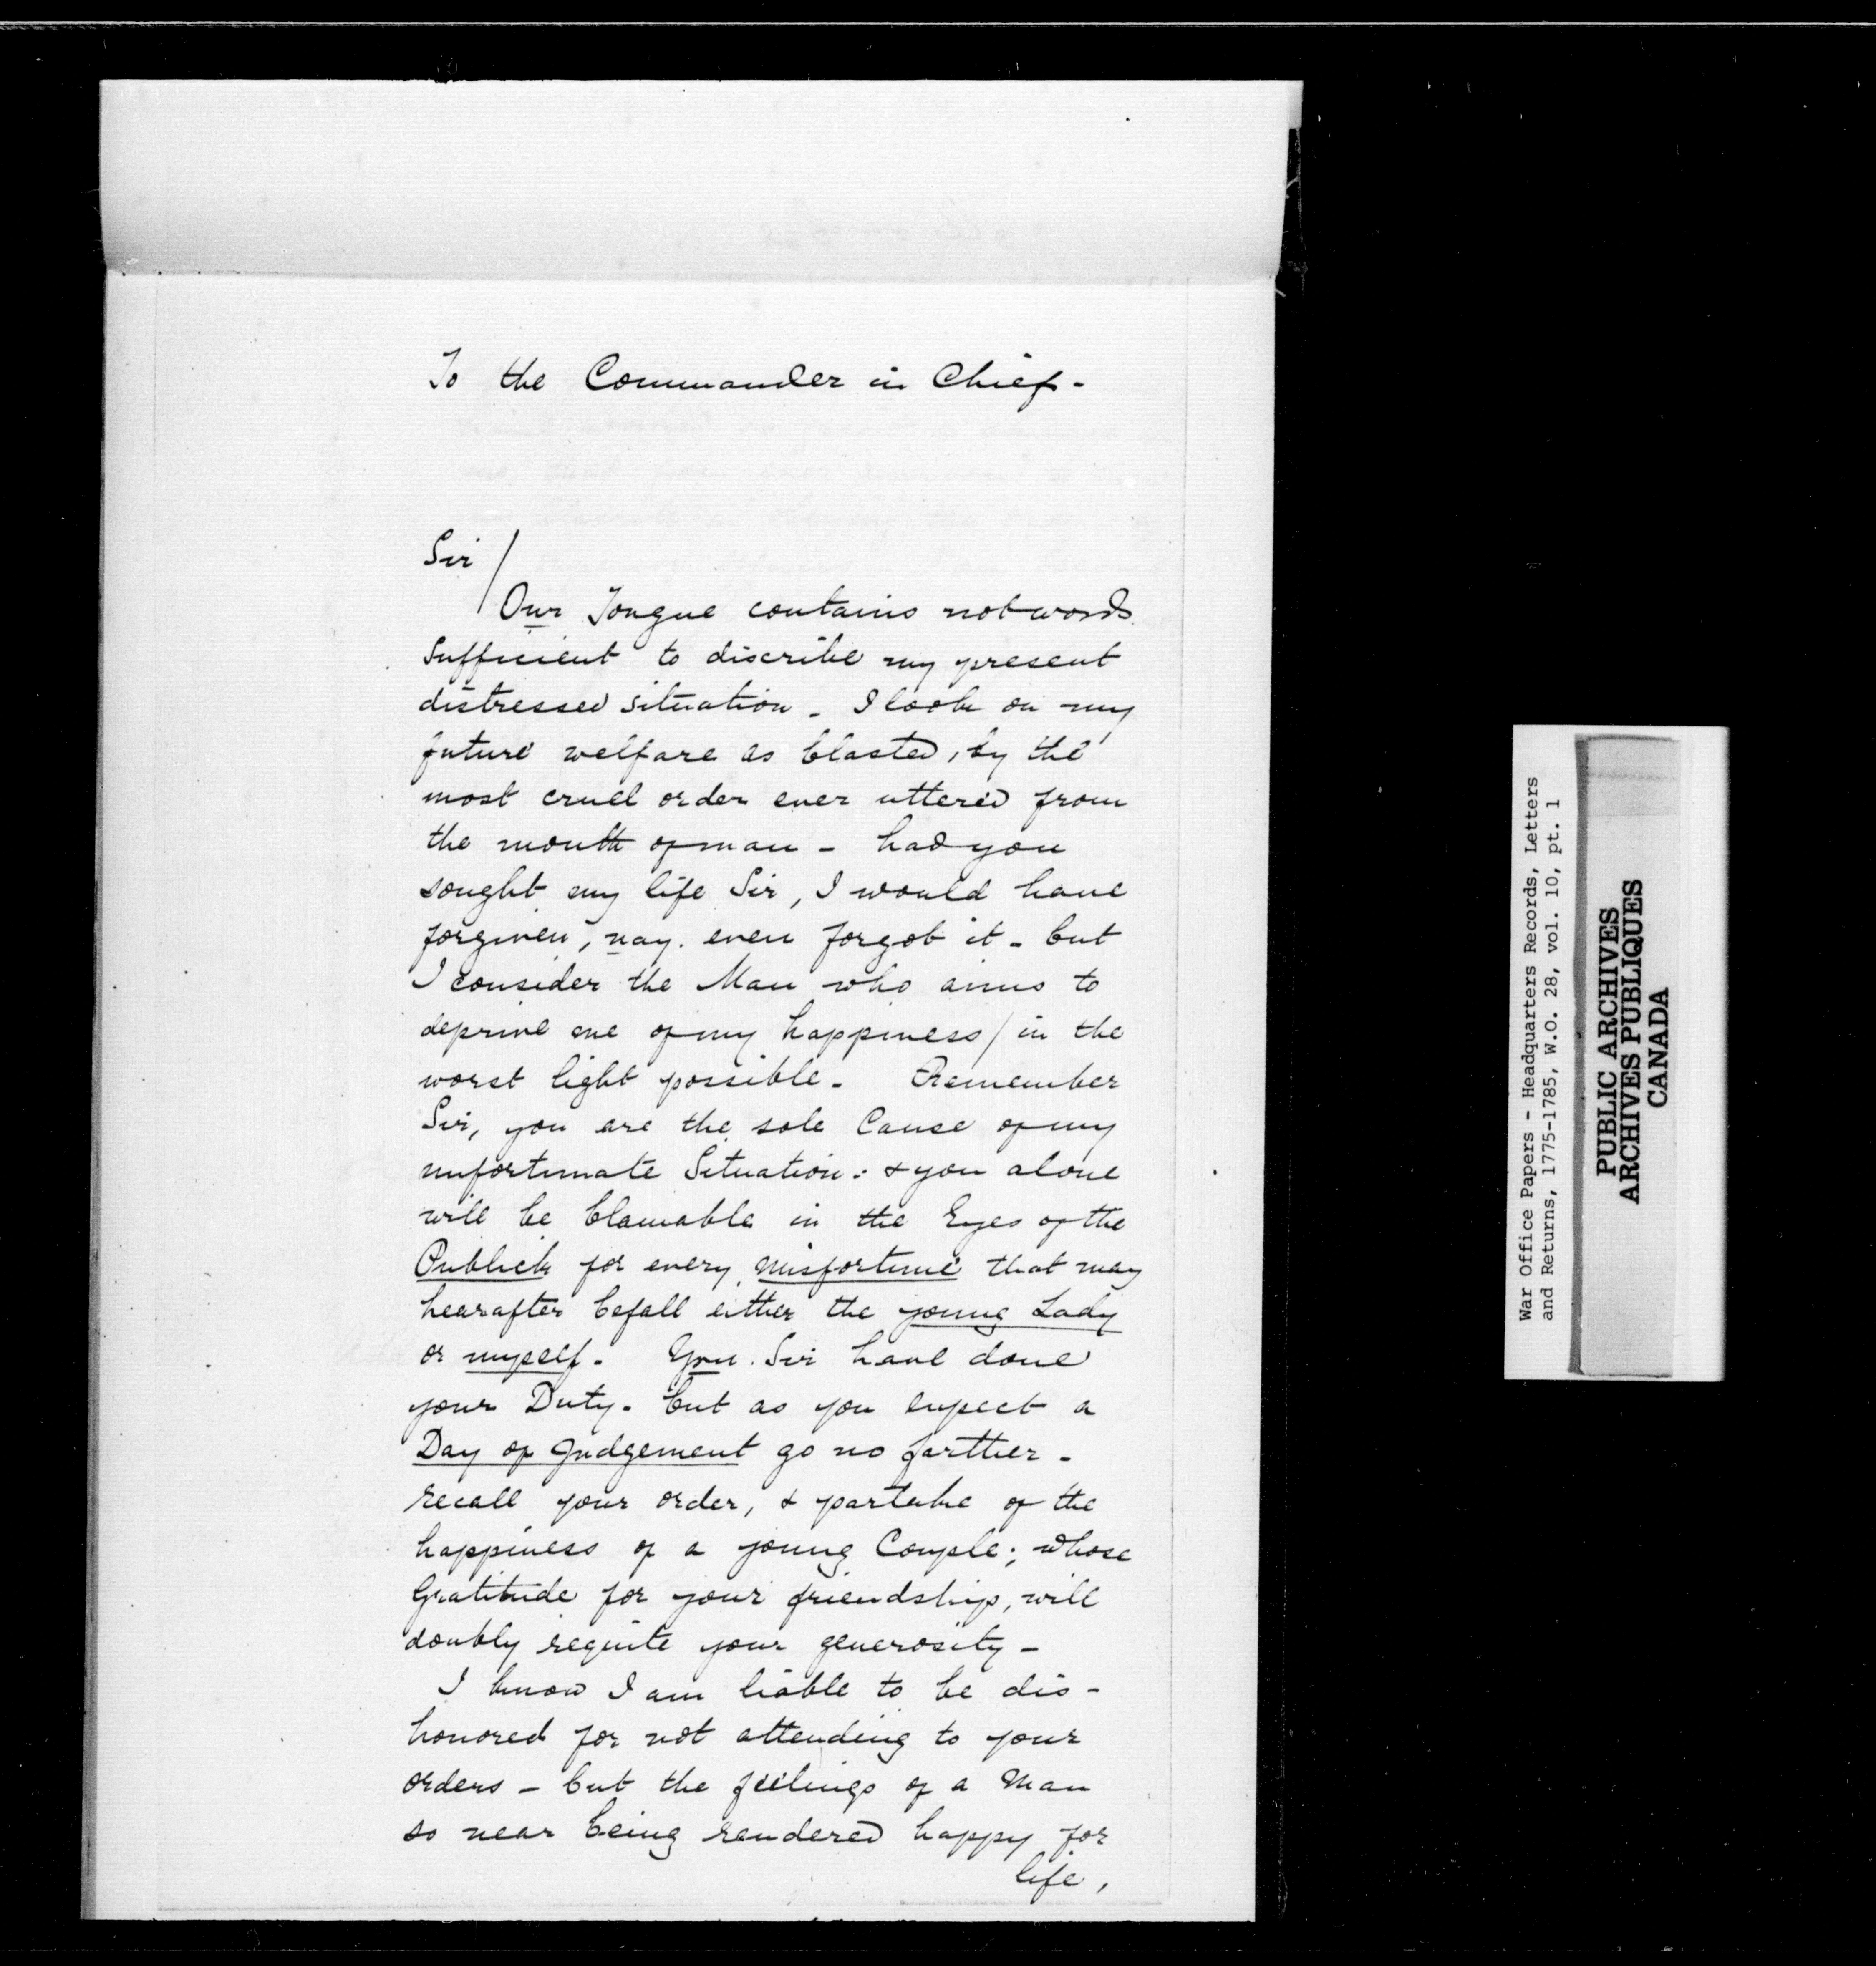 To the Commander in Chief -
Sir /
Our Tongue contains not words
Sufficient to discribe my present
distressed situation - I look on my
future welfare as blasted, by the
most cruel order ever uttered from
the mouth of man - had you
sought my life Sir, I would have
forgiven, nay. even forgot it - but
I consider the Man who aims to
deprive me of my happiness / in the
worst light possible - Remember
Sir, you are the sole Cause of my
unfortunate Situation : & you alone
will be blamable in the Eyes of the
Publick for every misfortune that may
hearafter befall either the young Lady
or myself - You. Sir have done
your Duty - but as you expect a
Day of Judgement go no farther -
recall your order, & partake of the
happiness of a young Couple; whose
Gratitude for your friendship, will
doubly requite your generosity -
I know I am liable to be dis-
honored for not attending to your
orders - but the feelings of a Man
so near being rendered happy for
life,
War Office Papers - Headquarters Records, Letters
and Returns, 1775-1785, W.O. 28, vol. 10, pt. 1
PUBLIC ARCHIVES
ARCHIVES PUBLIQUES
CANADA